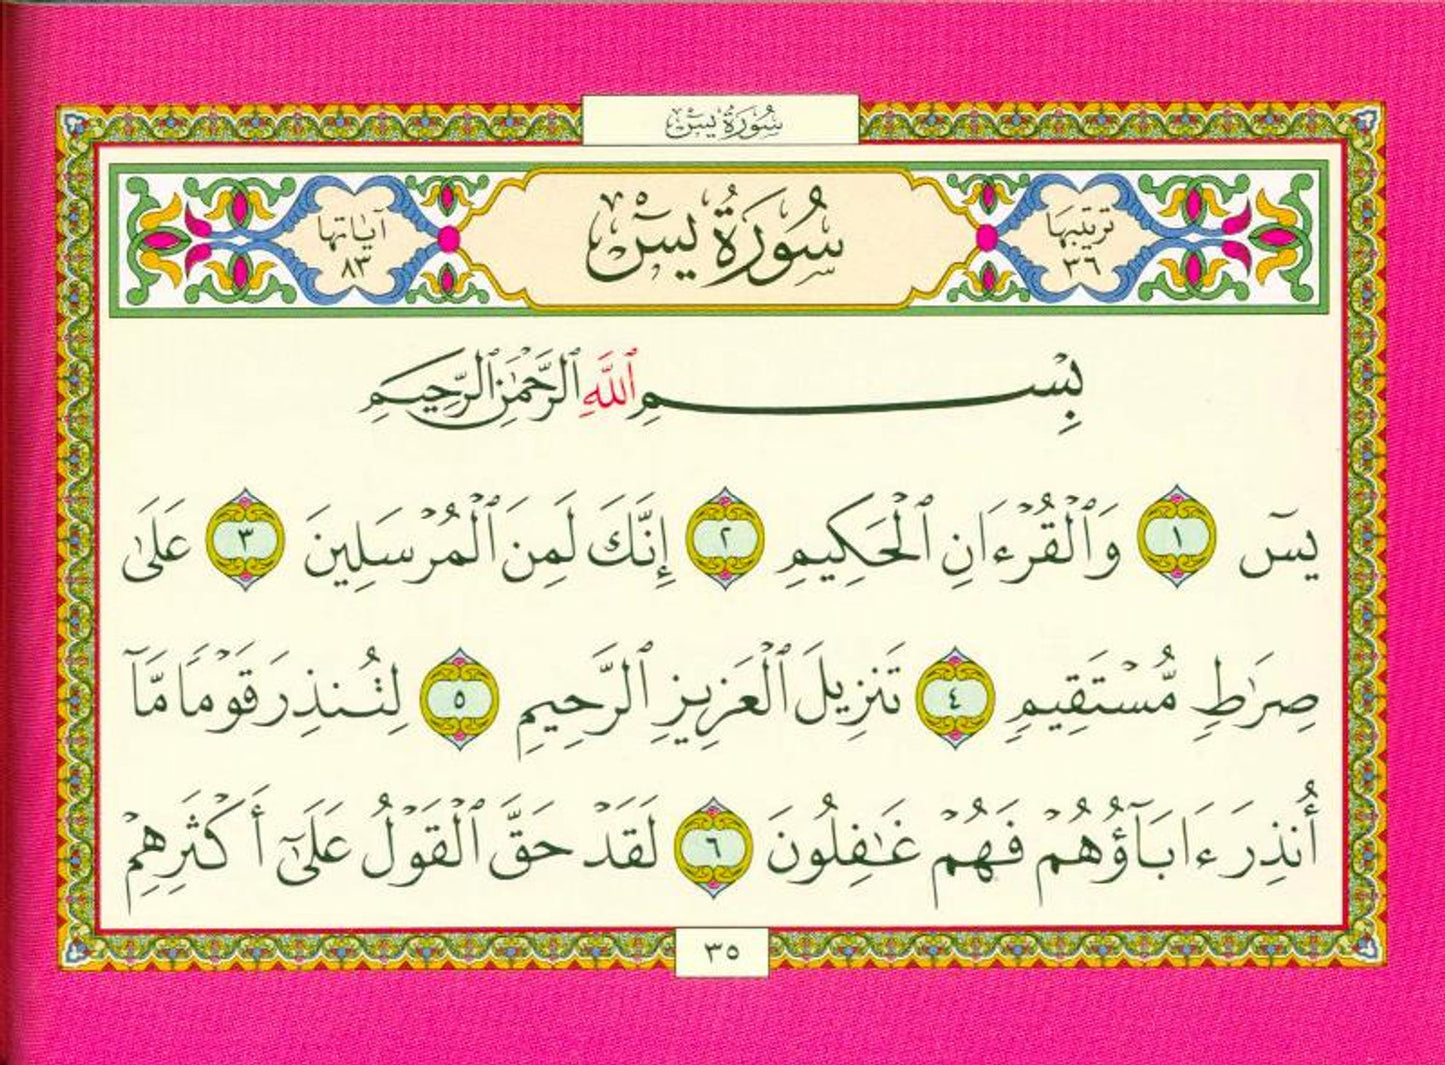 سُورَةُ يسٓ
ترتيبها
٣٦
سُورَةُ يسٓ
آياتها
٨٣
بِسْمِ ٱللَّهِ ٱلرَّحْمَٰنِ ٱلرَّحِيمِ
يسٓ ١ وَٱلْقُرْءَانِ ٱلْحَكِيمِ ٢ إِنَّكَ لَمِنَ ٱلْمُرْسَلِينَ ٣ عَلَىٰ
صِرَٰطٍ مُّسْتَقِيمٍ ٤ تَنزِيلَ ٱلْعَزِيزِ ٱلرَّحِيمِ ٥ لِتُنذِرَ قَوْمًا مَّآ
أُنذِرَ ءَابَآؤُهُمْ فَهُمْ غَٰفِلُونَ ٦ لَقَدْ حَقَّ ٱلْقَوْلُ عَلَىٰٓ أَكْثَرِهِمْ
٣٥